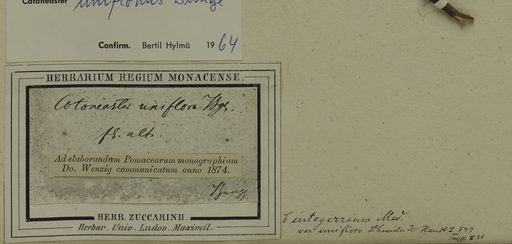 Cotoneaster uniflorus Bunge
Confirm. Bertil Hylmö 1964
HERBARIUM REGIUM MONACENSE.
Cotoneaster uniflora Bge.
fl. alt.
Ad elaborandam Pomacearum monographiam
Do. Wenzig communicatum anno 1874.
Bunge
HERB. ZUCCARINII.
Herbar. Univ. Ludov. Maximil.
C integerrima Med.
var uniflora Schneider Ill Handb II 747